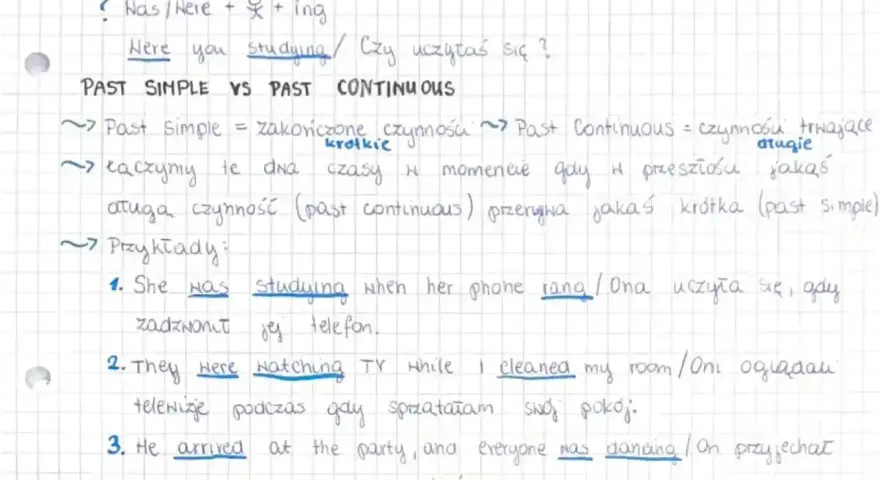 ? Was/Were + + ing
Were you studying/ Czy uczyłaś się?
PAST SIMPLE VS PAST CONTINUOUS
~> Past Simple = zakończone czynności ~> Past Continuous = czynności trwające
krótkie długie
~> Łączymy te dwa czasy w momencie gdy w przeszłości jakąś
długą czynność (past continuous) przerywa jakaś krótka (past simple)
~> Przykłady:
1. She was studying when her phone rang/Ona uczyła się, gdy
zadzwonił jej telefon.
2. They were watching TV while I cleaned my room/Oni oglądali
telewizję podczas gdy sprzątałam swój pokój.
3. He arrived at the party, and everyone was dancing/On przyjechał